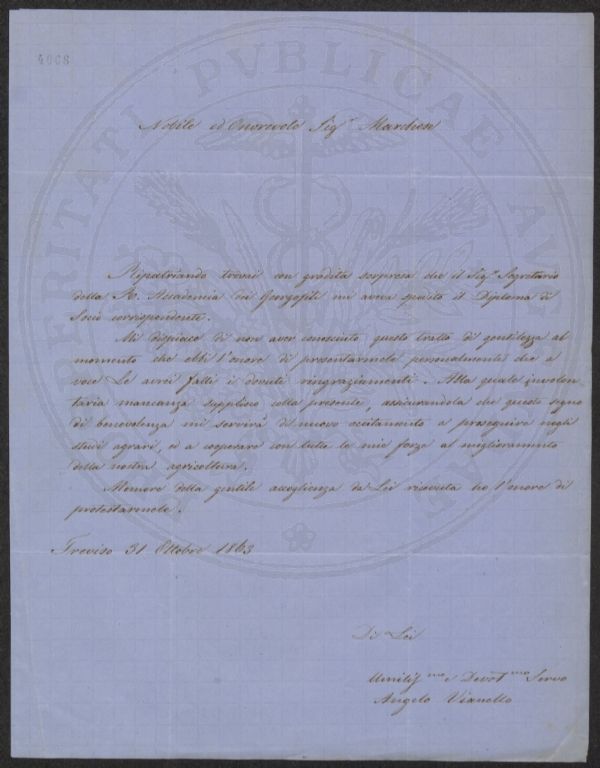 4068
PROSPERITATI PVBLICAE AVGENDAE
Nobile ed Onorevole Sigr Marchese
Ripatriando trovai con gradita sorpresa che il Sigr Segretario
della R. Accademia dei Georgofili mi aveva spedito il Diploma di
Socio corrispondente.
Mi dispiace di non aver conosciuto questo tratto di gentilezza al
momento che ebbi l'onore di presentarmele personalmente che a
voce Le avrei fatti i dovuti ringraziamenti. Alla quale involon
taria mancanza supplisco colla presente, assicurandola che questo segno
di benevolenza mi servirà di nuovo eccitamento a proseguire negli
studi agrari, ed a cooperare con tutte le mie forze al miglioramento
della nostra agricoltura.
Memore della gentile accoglienza da Lei ricevuta ho l'onore di
protestarmele.
Treviso 31 Ottobre 1863
Di Lei
Umilissmo e Devotmo Servo
Angelo Vianello